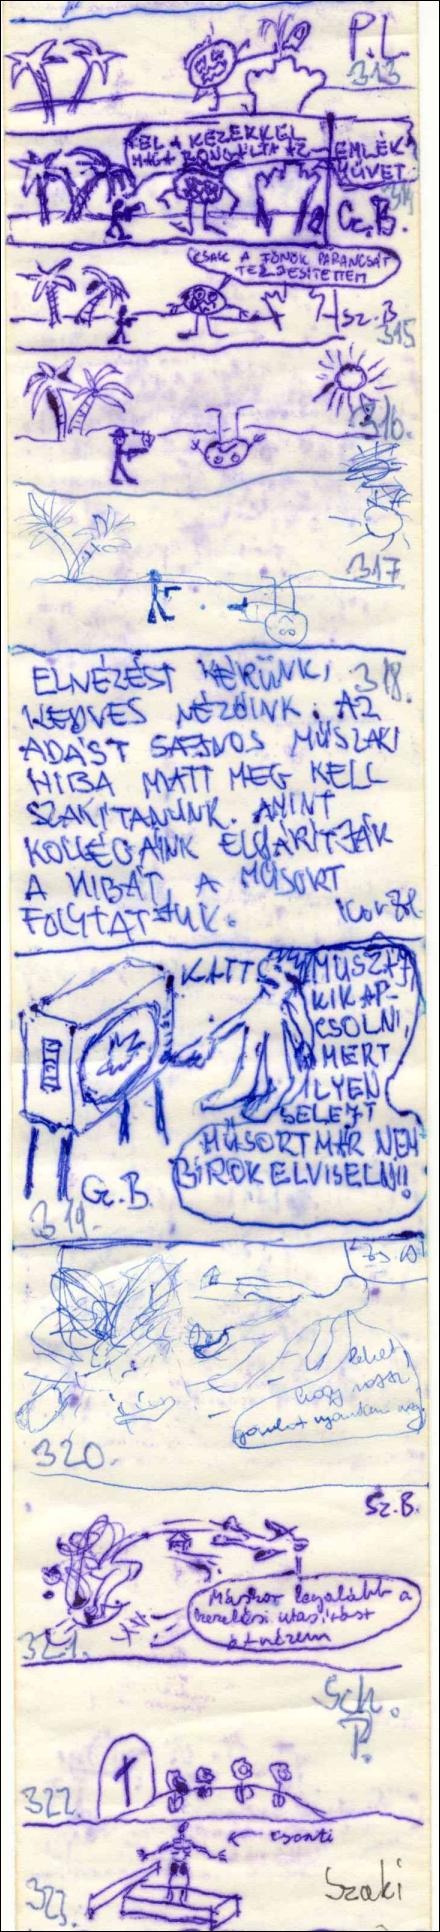 P.L.
313
FEL A KEZEKKEL
MAGA RONGÁLTA AZ
EMLÉK
MŰVET
314
G.B.
CSAK A FŐNÖK PARANCSÁT
TELJESÍTETTEM
Sz.B
315
316.
317
318.
ELNÉZÉST KÉRÜNK,
KEDVES NÉZŐINK. AZ
ADÁST SAJNOS MŰSZAKI
HIBA MIATT MEG KELL
SZAKÍTANUNK. AMINT
KOLLÉGÁINK ELHÁRÍTJÁK
A HIBÁT, A MŰSORT
FOLYTATJUK.
KATT
MUSZÁJ
KIKAP-
CSOLNI,
MERT
ILYEN
SELEJT
MŰSORT MÁR NEM
BÍROK ELVISELNI!
G.B.
319.
lehet,
hogy rossz
gombot nyomtam meg
320.
Sz.B.
Máskor legalább a
kezelési utasítást
átnézem
321.
Sch.
P.
322.
csonti
Szaki
323.